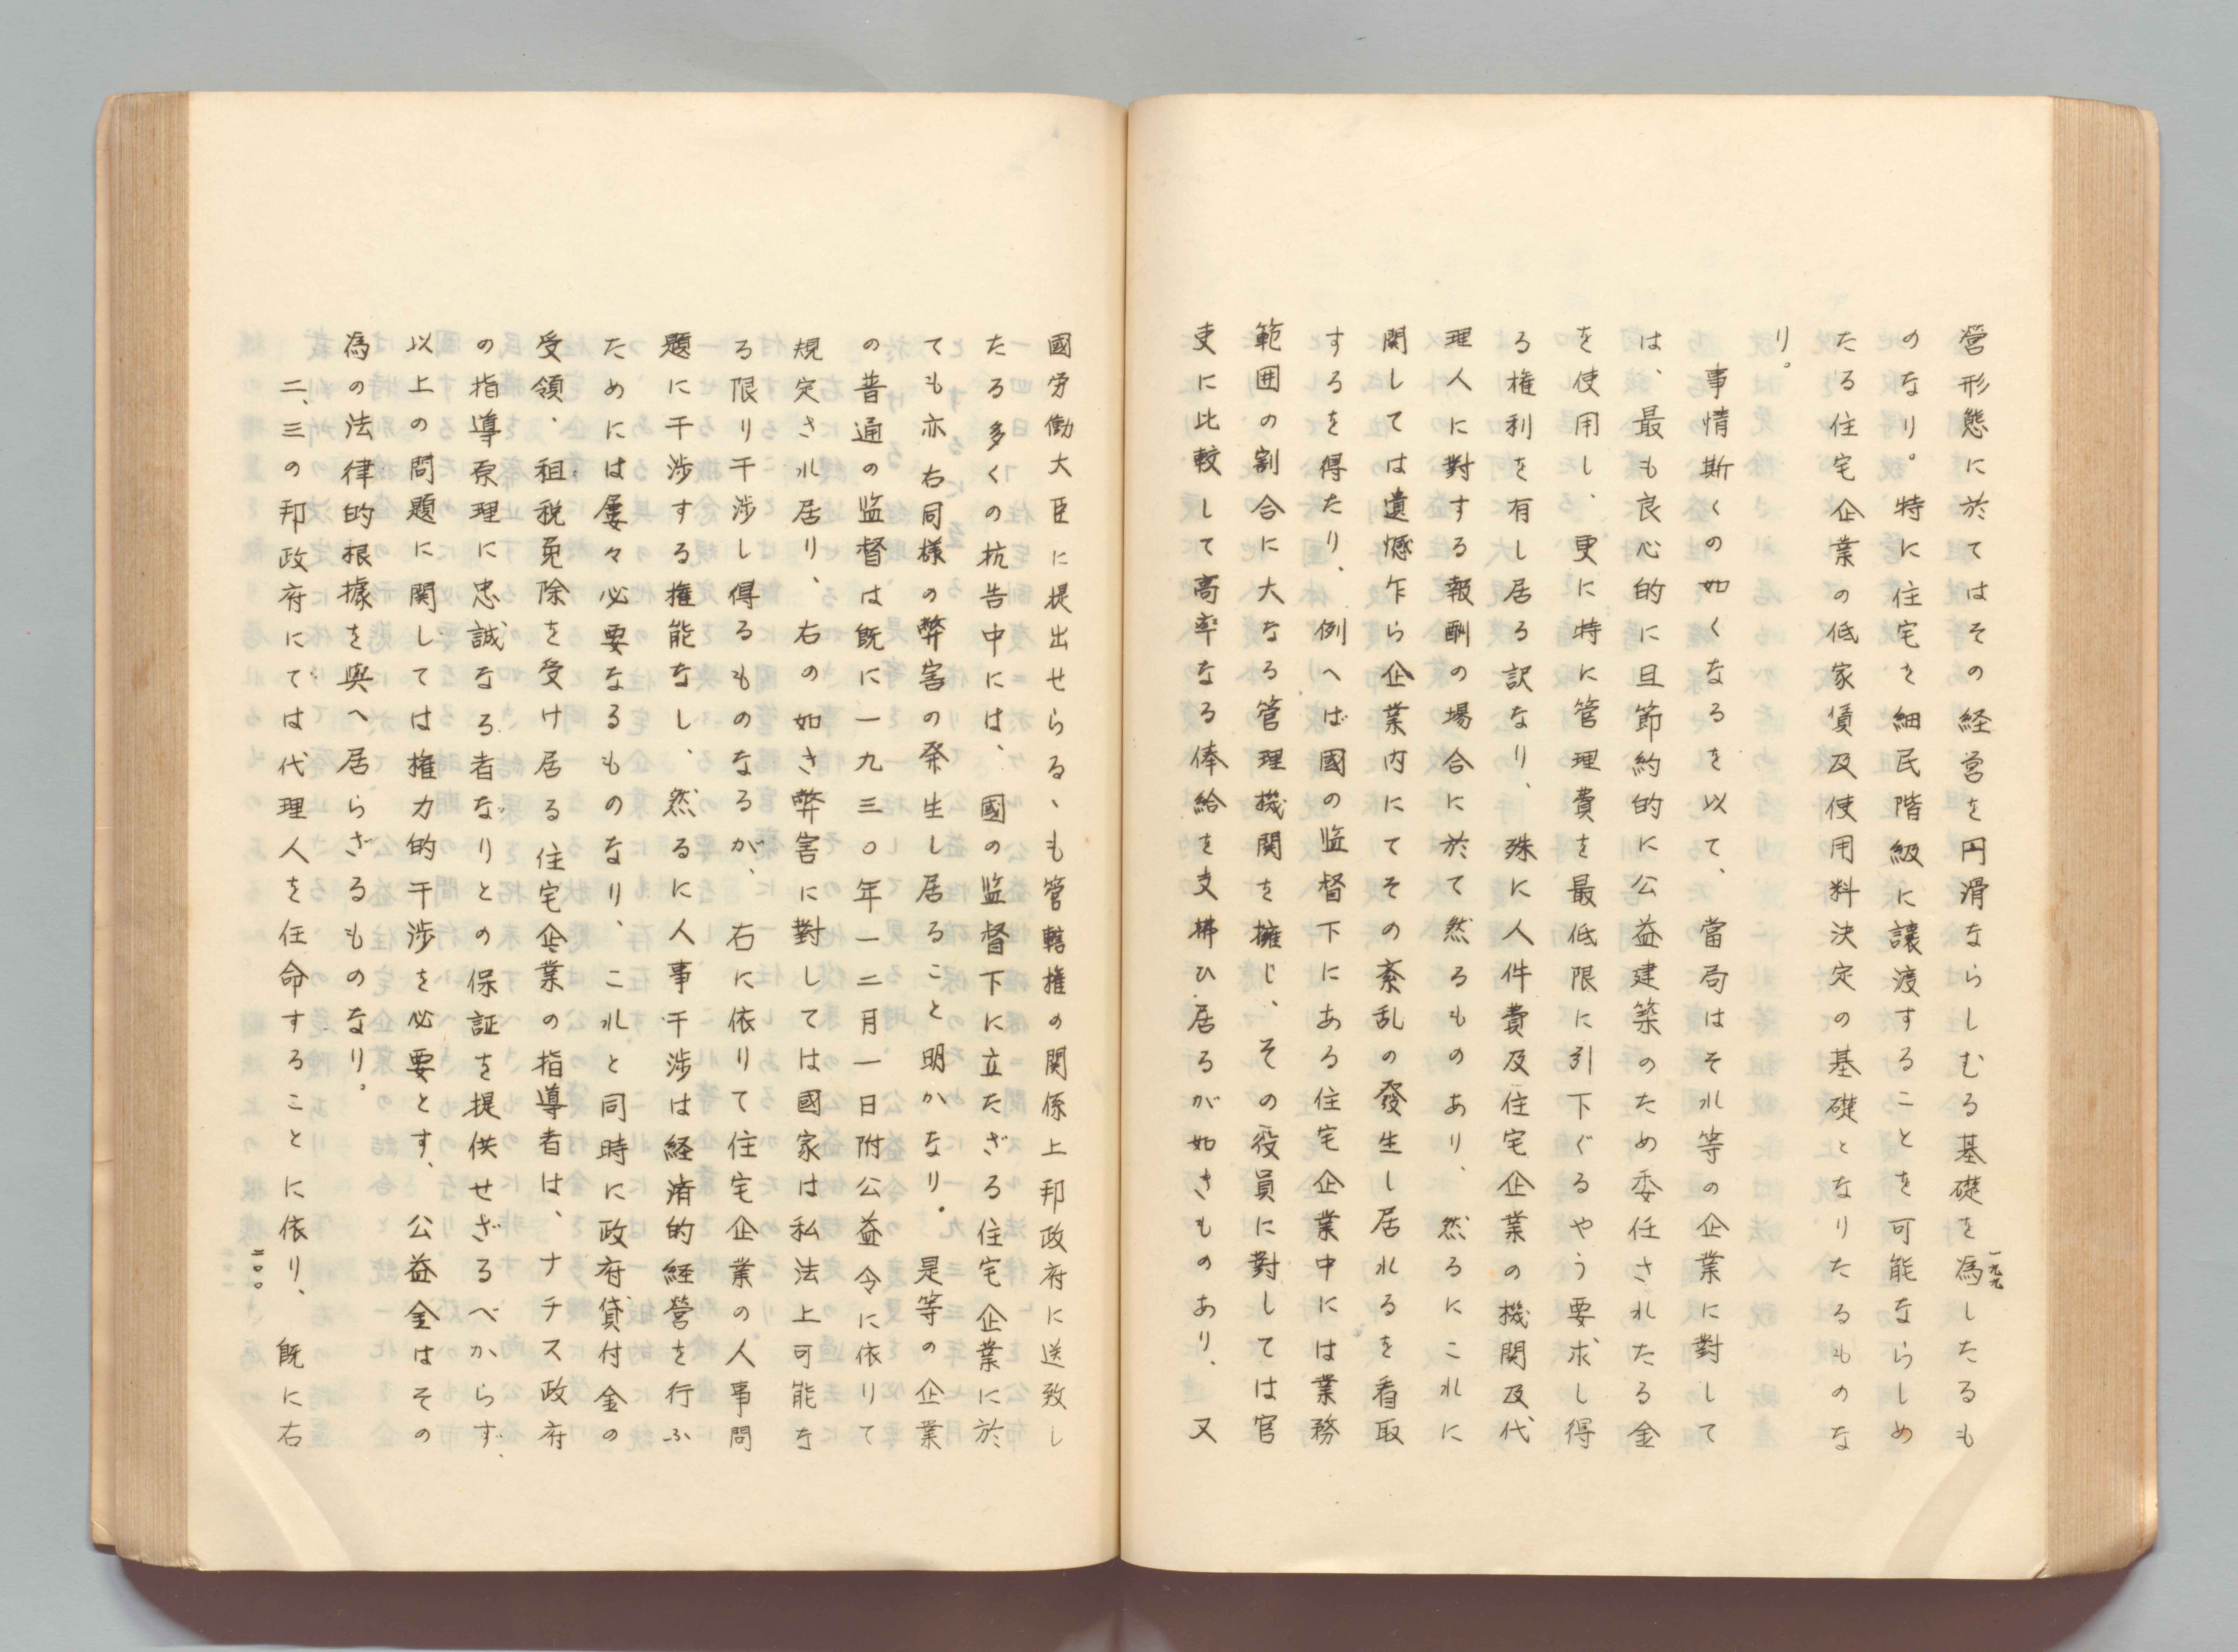 営形態に於てはその経営を円滑ならしむる基礎を為したるも
のなり。特に住宅を細民階級に譲渡することを可能ならしめ
たる住宅企業の低家賃及使用料決定の基礎となりたるものな
り。
事情斯くの如くなるを以て、當局はそれ等の企業に對して
は、最も良心的に且節約的に公益建築のため委任されたる金
を使用し、更に特に管理費を最低限に引下ぐるやう要求し得
る権利を有し居る訳なり、殊に人件費及住宅企業の機関及代
理人に對する報酬の場合に於て然るものあり、然るにこれに
関しては遺憾乍ら企業内にてその紊乱の發生し居れるを看取
するを得たり、例へば國の監督下にある住宅企業中には業務
範囲の割合に大なる管理機関を擁し、その役員に對しては官
吏に比較して高率なる俸給を支拂ひ居るが如きものあり、又
一九九
國労働大臣に提出せらるゝも管轄権の関係上邦政府に送致し
たる多くの抗告中には、國の監督下に立たざる住宅企業に於
ても亦右同様の弊害の発生し居ること明かなり。是等の企業
の普通の監督は既に一九三〇年一二月一日附公益令に依りて
規定され居り、右の如き弊害に對しては國家は私法上可能な
る限り干渉し得るものなるが、右に依りて住宅企業の人事問
題に干渉する権能なし、然るに人事干渉は経済的経営を行ふ
ためには屡々必要なるものなり、これと同時に政府貸付金の
受領、租税免除を受け居る住宅企業の指導者は、ナチス政府
の指導原理に忠誠なる者なりとの保証を提供せざるべからず、
以上の問題に関しては権力的干渉を必要とす、公益金はその
為の法律的根據を與へ居らざるものなり。
二、三の邦政府にては代理人を任命することに依り、既に右
二〇〇